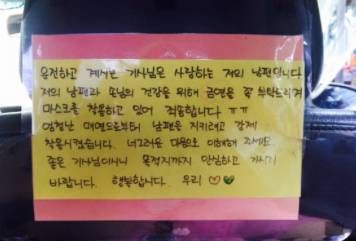 운전하고 계시는 기사님은 사랑하는 저의 남편입니다
저의 남편과 손님의 건강을 위해 금연을 좀 부탁드리며
마스크를 착용하고 있어 죄송합니다 ㅠㅠ
엄청난 매연으로부터 남편을 지키려고 강제
착용시켰습니다. 너그러운 마음으로 이해해 주세요.
좋은 기사님이시니 목적지까지 안심하고 가시기
바랍니다. 행복합니다. 우리 ♡♡